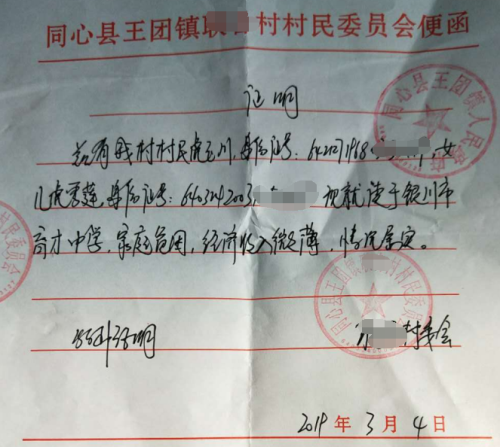 同心县王团镇联 村村民委员会便函
证明
兹有我村村民虎玉川,身份证号:642221968 女
儿虎秀莲,身份证号:6403242003 现就读于银川市
育才中学,家庭贫困,经济收入微薄,情况属实。
特此证明
村委会
2019年3月4日
同心县王团镇人民政府
同心县王团镇 村村民委员会
村民委员会